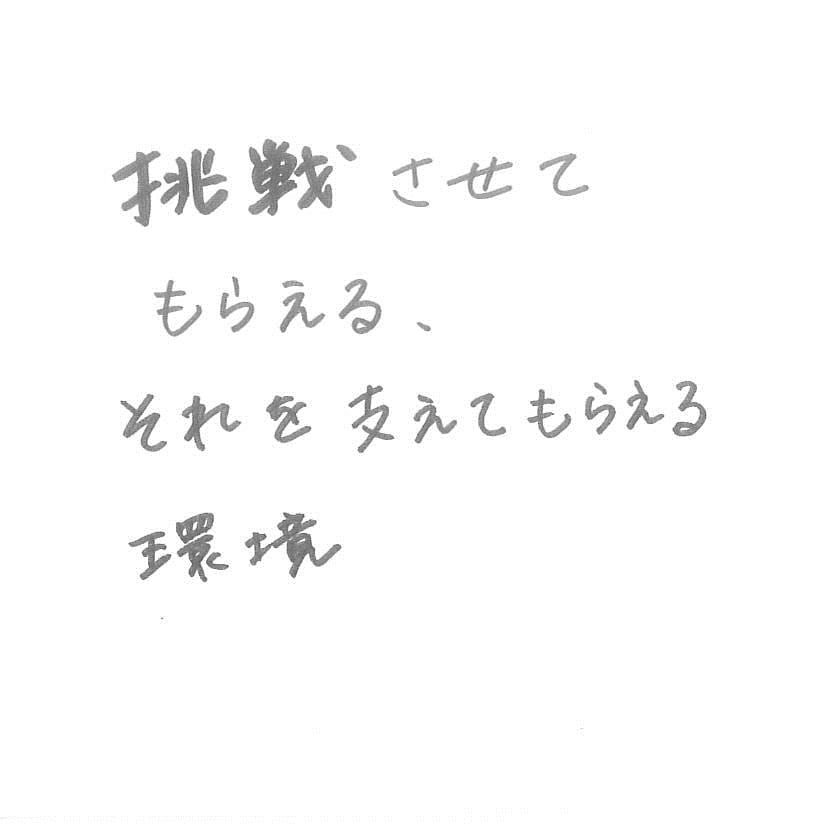 挑戦させて
もらえる、
それを支えてもらえる
環境